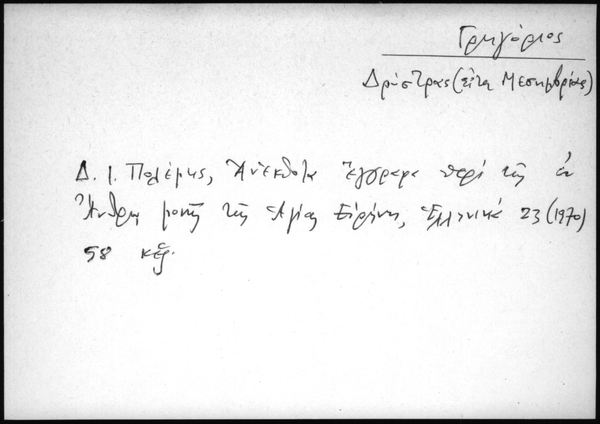 Γρηγόριος
Δρύστρας (εἶτα Μεσημβρίας)
Δ. Ι. Πολέμης, Ἀνέκδοτα ἔγγραφα περὶ τῆς ἐν
Ἄνδρῳ μονῆς τῆς Ἁγίας Εἰρήνης, Ἑλληνικά 23 (1970)
58 κἑξ.